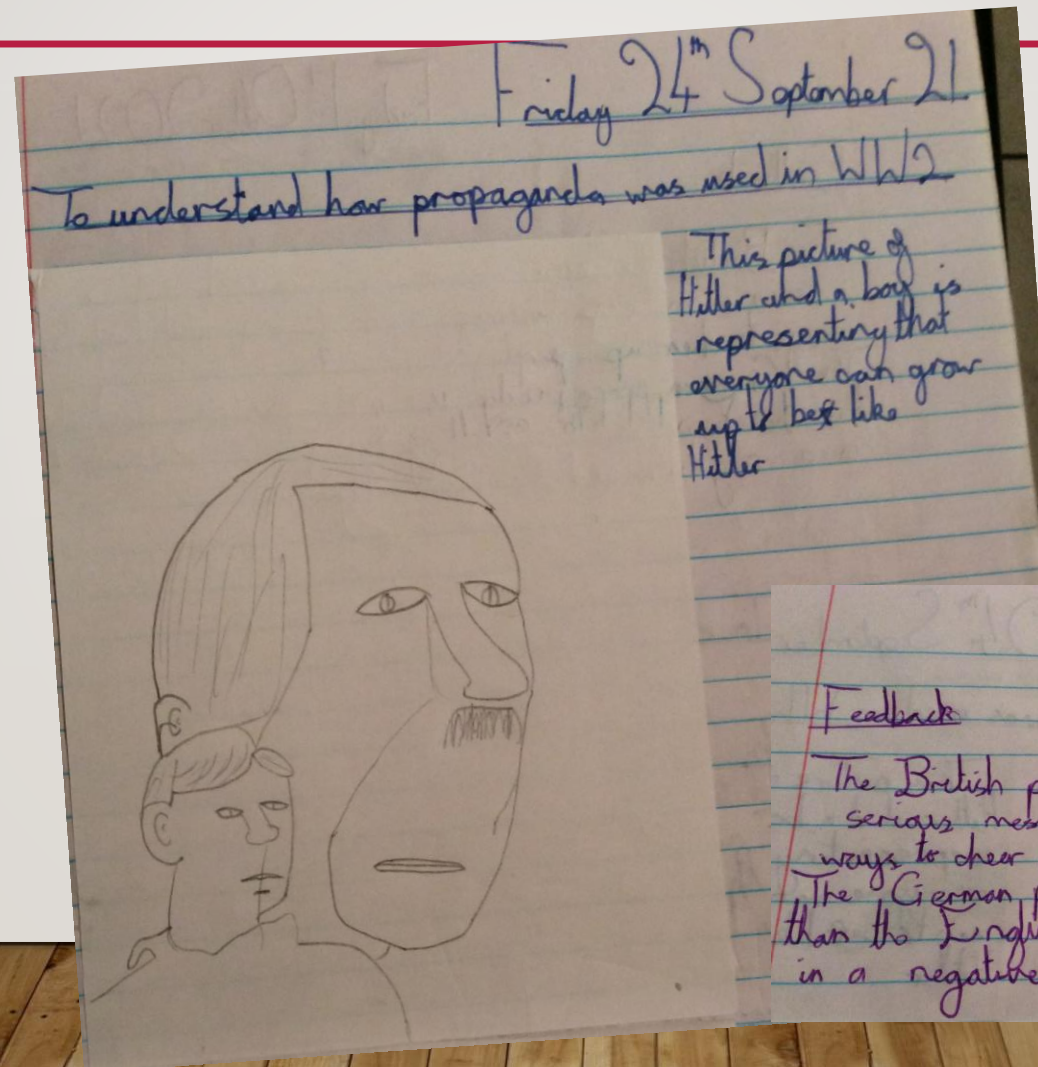 Friday 24th September 21
To understand how propaganda was used in WW2
This picture of
Hitler and a boy is
representing that
everyone can grow
up to be like
Hitler
Feedback
The British p
serious mes
ways to cheer
The German p
than the Engli
in a negative